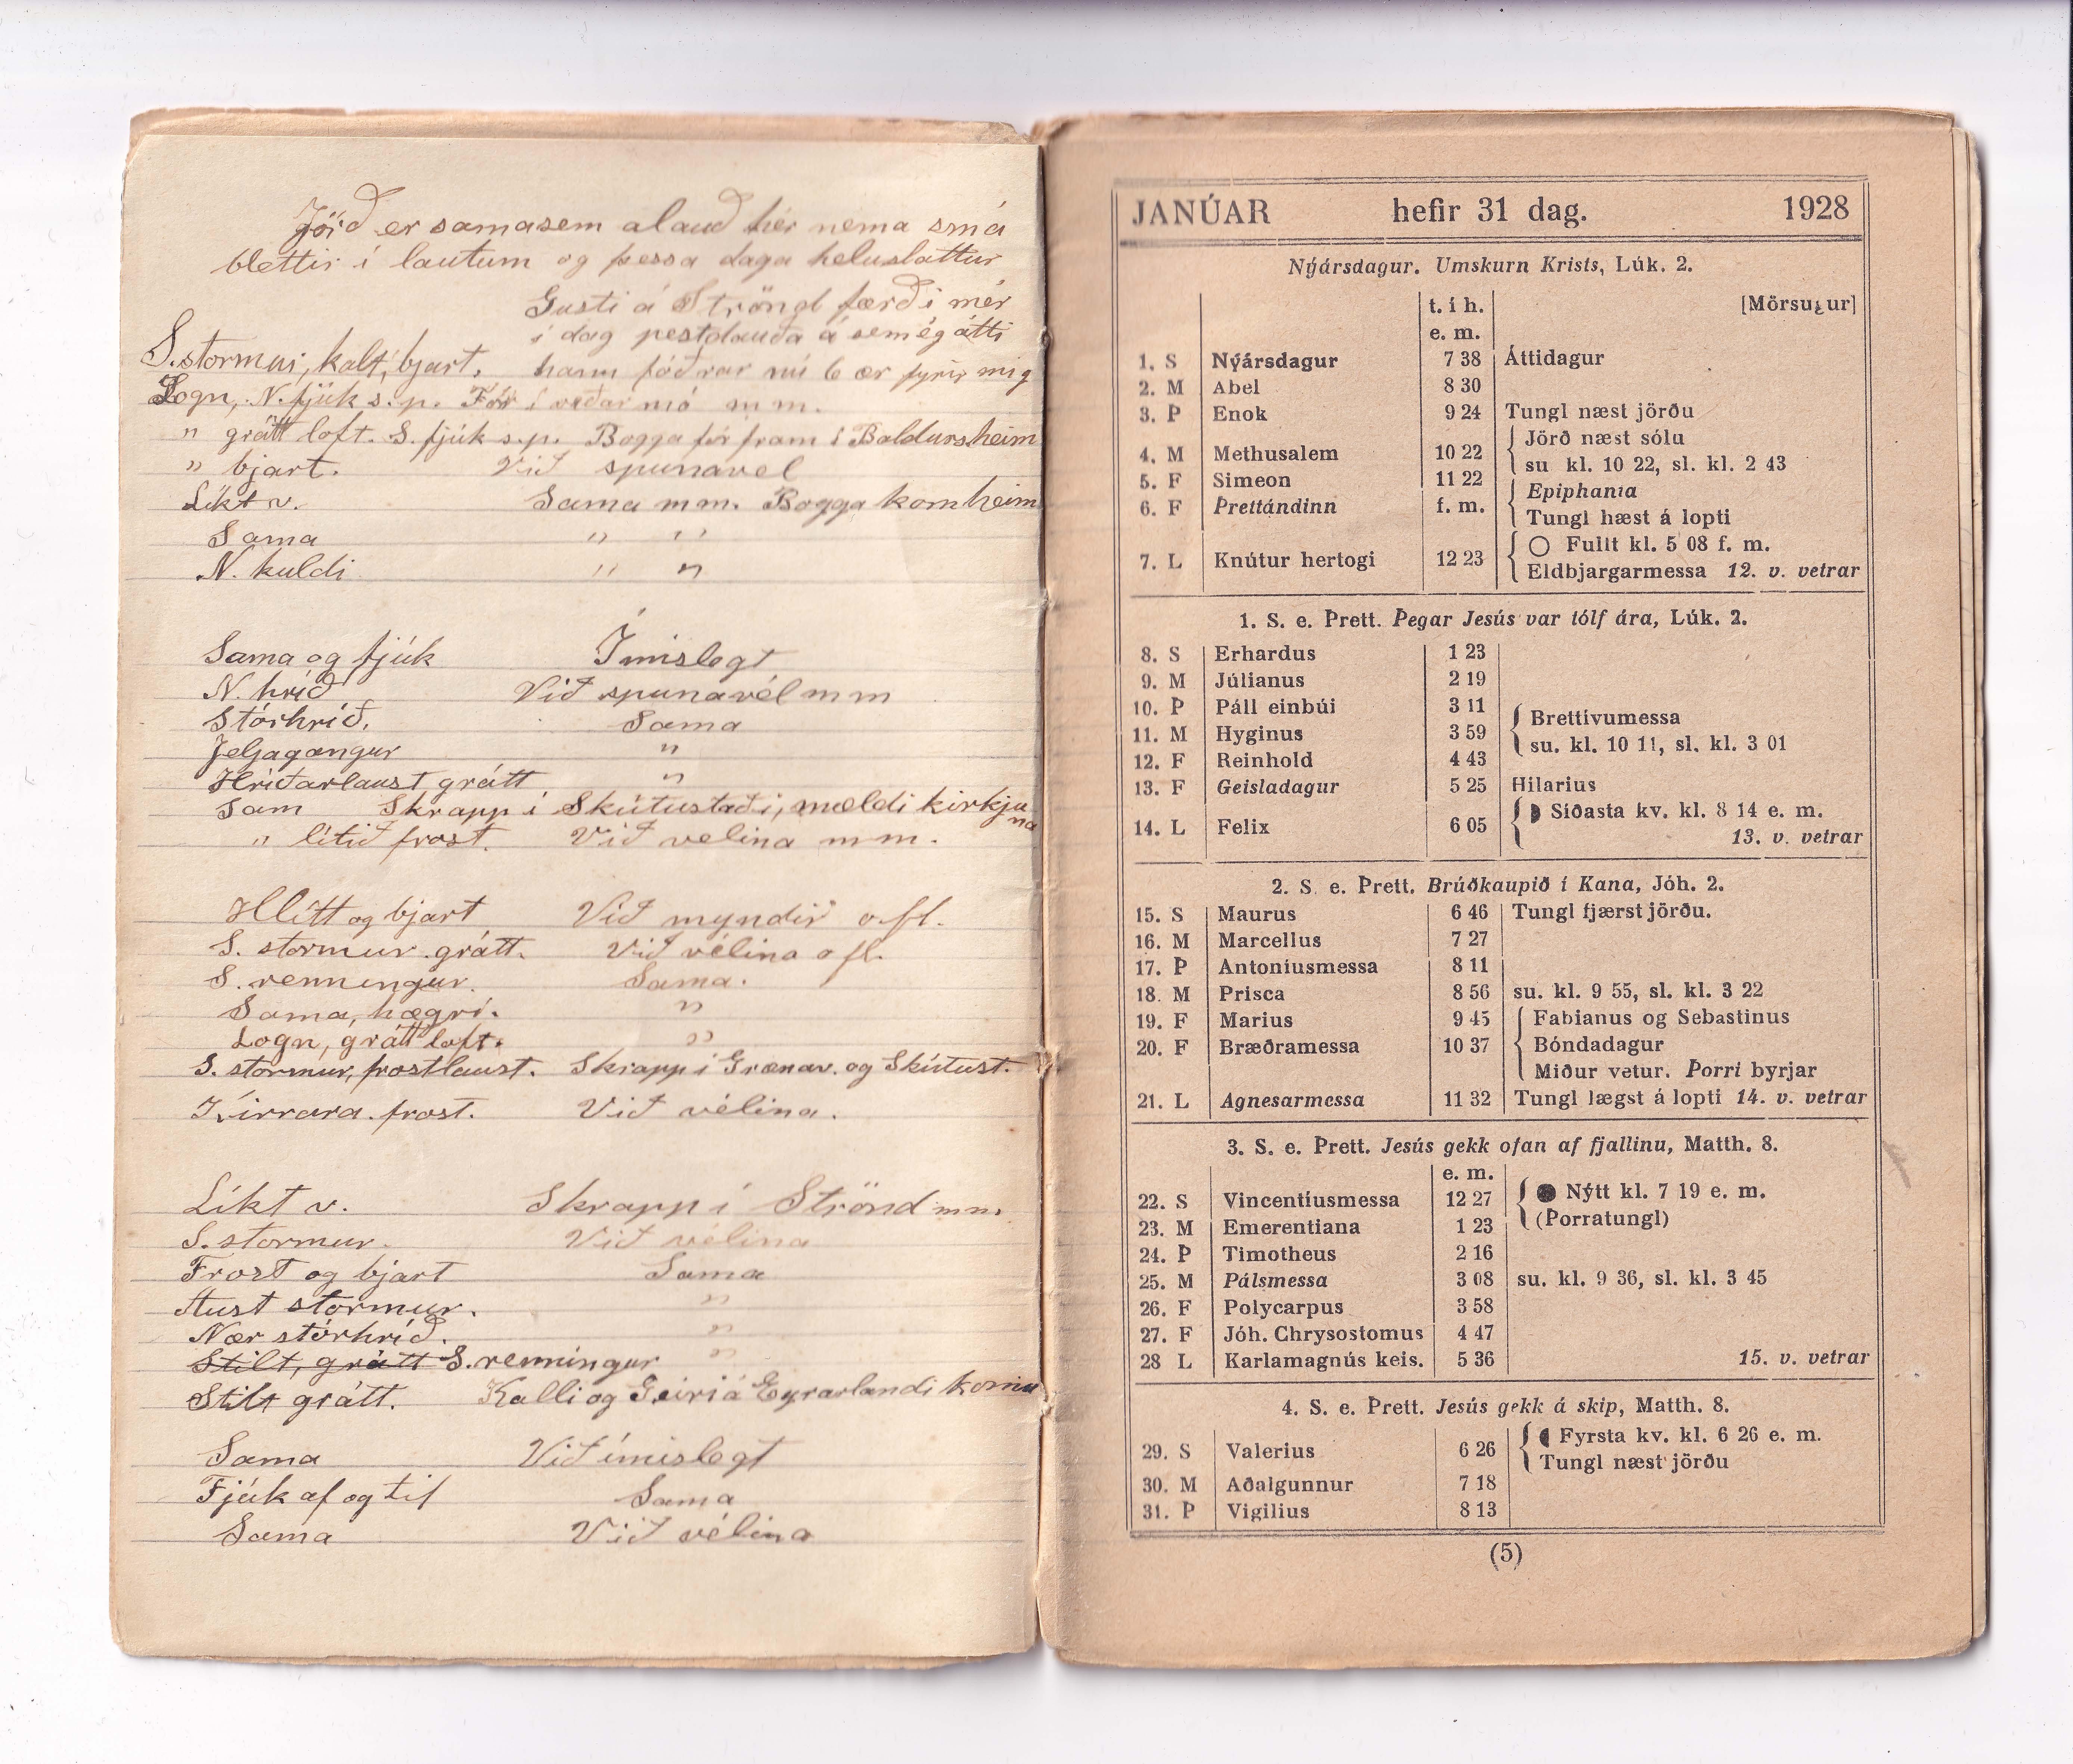 Jörð er samasem alauð hér nema smá
blettir í lautum og þessa daga heluslattur
Gusti á Strönd færði mér
í dag pestdauða á sem ég átti
S. stormur, kalt, bjart. hann fóðrar nú 6 ær fyrir mig
Logn, N. fjúk s.p. Fór í viðar mó m m.
" grátt loft. S. fjúk s.p. Bogga fór fram í Baldursheim
" bjart. Við spunavel
Líkt v. Sama m m. Bogga kom heim
Sama " "
N. kuldi " "
Sama og fjúk Ímislegt
N. hríð Við spunavél m m
Stórhríð. Sama
Jeljagangur "
Hríðarlaust grátt "
Sam Skrapp í Skútustaði, mældi kirkjuna
" lítið frost. Við velina m m.
Hlítt og bjart Við myndir o.fl.
S. stormur grátt. Við vélina o fl.
S. renningur. Sama.
Sama, hægri. "
Logn, grátt loft. "
S. stormur, frostlaust. Skrapp í Grænav. og Skútust.
Kirrara frost. Við vélina.
Líkt v. Skrapp í Strönd m m.
S. stormur. Við vélina
Frost og bjart Sama
Aust stormur. "
Nær stórhríð. "
Stilt, grátt S. renningur "
Stilt grátt. Kalli og Geiri á Eyrarlandi komu
Sama Við ímislegt
Fjúk af og til Sama
Sama Við vélina
JANÚAR hefir 31 dag. 1928
Nýársdagur. Umskurn Krists, Lúk. 2.
t. í h. [Mörsugur]
e. m.
1. S Nýársdagur 7 38 Áttidagur
2. M Abel 8 30
3. Þ Enok 9 24 Tungl næst jörðu
Jörð næst sólu
4. M Methusalem 10 22 su kl. 10 22, sl. kl. 2 43
5. F Simeon 11 22 Epiphanía
6. F Þrettándinn f. m. Tungl hæst á lopti
○ Fullt kl. 5 08 f. m.
7. L Knútur hertogi 12 23 Eldbjargarmessa 12. v. vetrar
1. S. e. Þrett. Þegar Jesús var tólf ára, Lúk. 2.
8. S Erhardus 1 23
9. M Júlíanus 2 19
10. Þ Páll einbúi 3 11 Brettívumessa
11. M Hyginus 3 59 su. kl. 10 11, sl. kl. 3 01
12. F Reinhold 4 43
13. F Geisladagur 5 25 Hilarius
Síðasta kv. kl. 8 14 e. m.
14. L Felix 6 05 13. v. vetrar
2. S. e. Þrett. Brúðkaupið í Kana, Jóh. 2.
15. S Maurus 6 46 Tungl fjærst jörðu.
16. M Marcellus 7 27
17. Þ Antoníusmessa 8 11
18. M Prisca 8 56 su. kl. 9 55, sl. kl. 3 22
19. F Marius 9 45 Fabianus og Sebastinus
20. F Bræðramessa 10 37 Bóndadagur
Miður vetur. Þorri byrjar
21. L Agnesarmessa 11 32 Tungl lægst á lopti 14. v. vetrar
3. S. e. Þrett. Jesús gekk ofan af fjallinu, Matth. 8.
e. m.
22. S Vincentíusmessa 12 27 ● Nýtt kl. 7 19 e. m.
23. M Emerentiana 1 23 (Þorratungl)
24. Þ Timotheus 2 16
25. M Pálsmessa 3 08 su. kl. 9 36, sl. kl. 3 45
26. F Polycarpus 3 58
27. F Jóh. Chrysostomus 4 47
28 L Karlamagnús keis. 5 36 15. v. vetrar
4. S. e. Þrett. Jesús gekk á skip, Matth. 8.
Fyrsta kv. kl. 6 26 e. m.
29. S Valerius 6 26 Tungl næst jörðu
30. M Aðalgunnur 7 18
31. Þ Vigilius 8 13
(5)